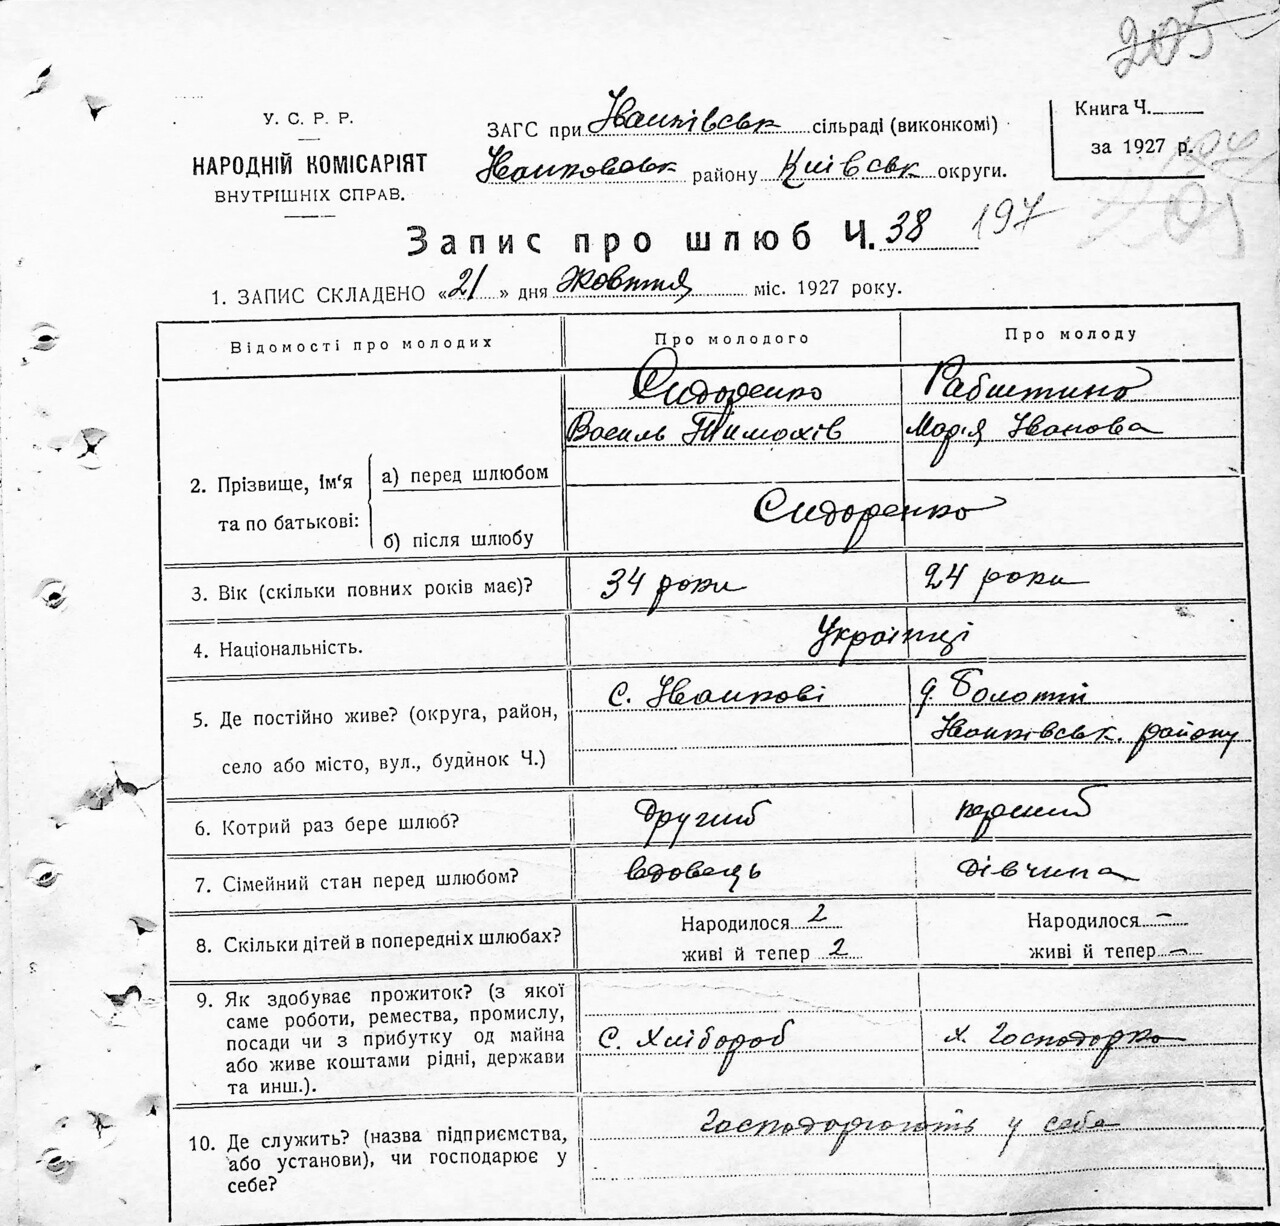 205
У. С. Р. Р.
НАРОДНІЙ КОМІСАРІЯТ
ВНУТРІШНІХ СПРАВ.
ЗАГС при Іванківськ сільраді (виконкомі)
Іванковськ району Київськ округи.
Книга Ч.
за 1927 р.
Запис про шлюб Ч. 38 197
1. ЗАПИС СКЛАДЕНО «21» дня Жовтня міс. 1927 року.
Відомості про молодих
Про молодого
Про молоду
2. Прізвище, ім'я та по батькові:
а) перед шлюбом
Сидоренко
Василь Тимохів
Рабштино
Марія Іванова
б) після шлюбу
Сидоренко
3. Вік (скільки повних років має)?
34 роки
24 роки
4. Національність.
Українці
5. Де постійно живе? (округа, район,
село або місто, вул., будинок Ч.)
с. Іванкові
д. Болотні
Іванківськ. району
6. Котрий раз бере шлюб?
Другий
перший
7. Сімейний стан перед шлюбом?
вдовець
дівчина
8. Скільки дітей в попередніх шлюбах?
Народилося 2
живі й тепер 2
Народилося –
живі й тепер –
9. Як здобуває прожиток? (з якої
саме роботи, ремества, промислу,
посади чи з прибутку од майна
або живе коштами рідні, держави
та инш.).
С. Хлібороб
х. Господарка
10. Де служить? (назва підприємства,
або установи), чи господарює у
себе?
Господарюють у себе